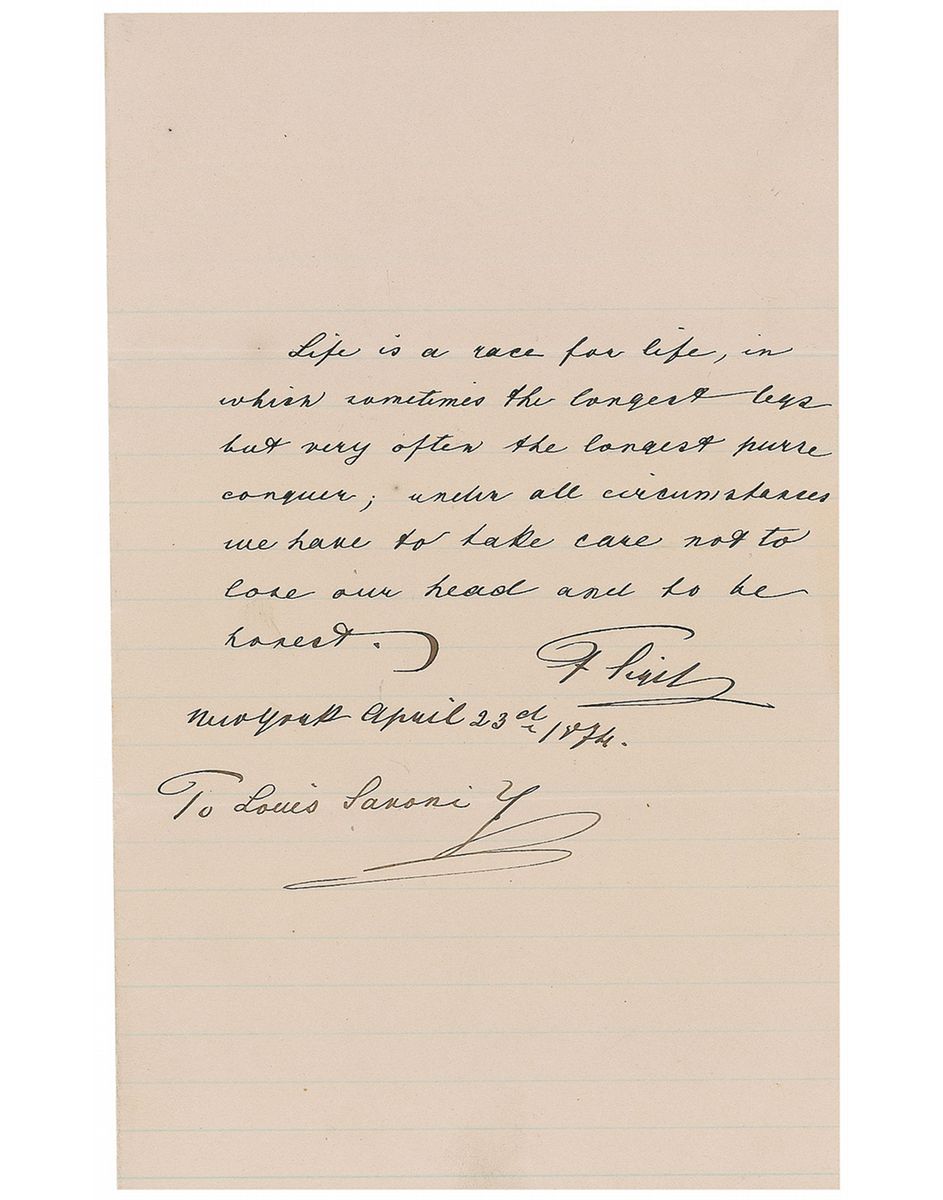 Life is a race for life, in
which sometimes the longest legs
but very often the longest purse
conquer; under all circumstances
we have to take care not to
lose our head and to be
honest.
New York April 23d 1874.
To Louis Saroni